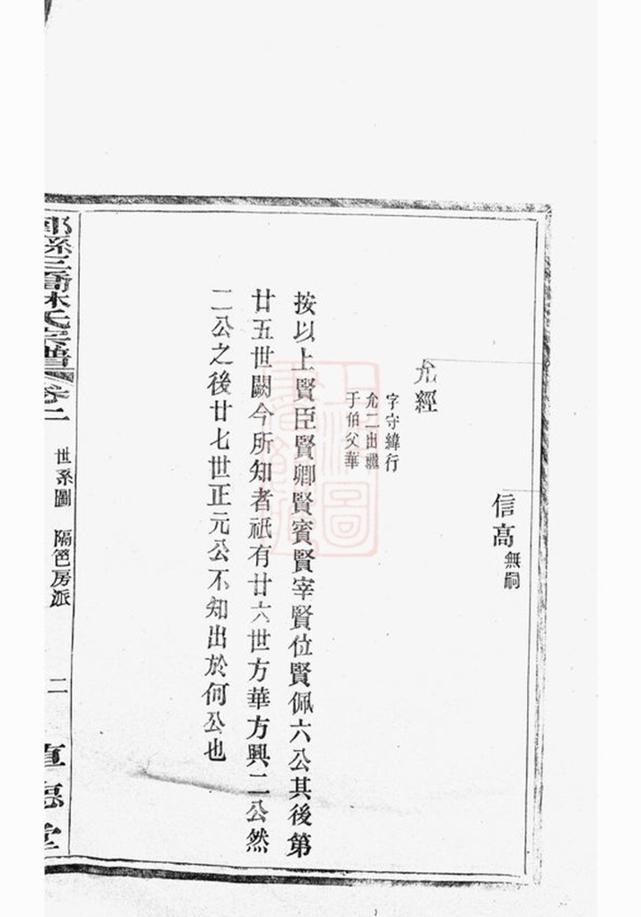 信高 無嗣
允經
字守緯行
允二出繼
于伯父華
按以上賢臣賢卿賢賓賢宰賢位賢佩六公其後第
廿五世闕今所知者祇有廿六世方華方興二公然
二公之後廿七世正元公不知出於何公也
林氏宗譜 卷二 世系圖 隔笆房派 二